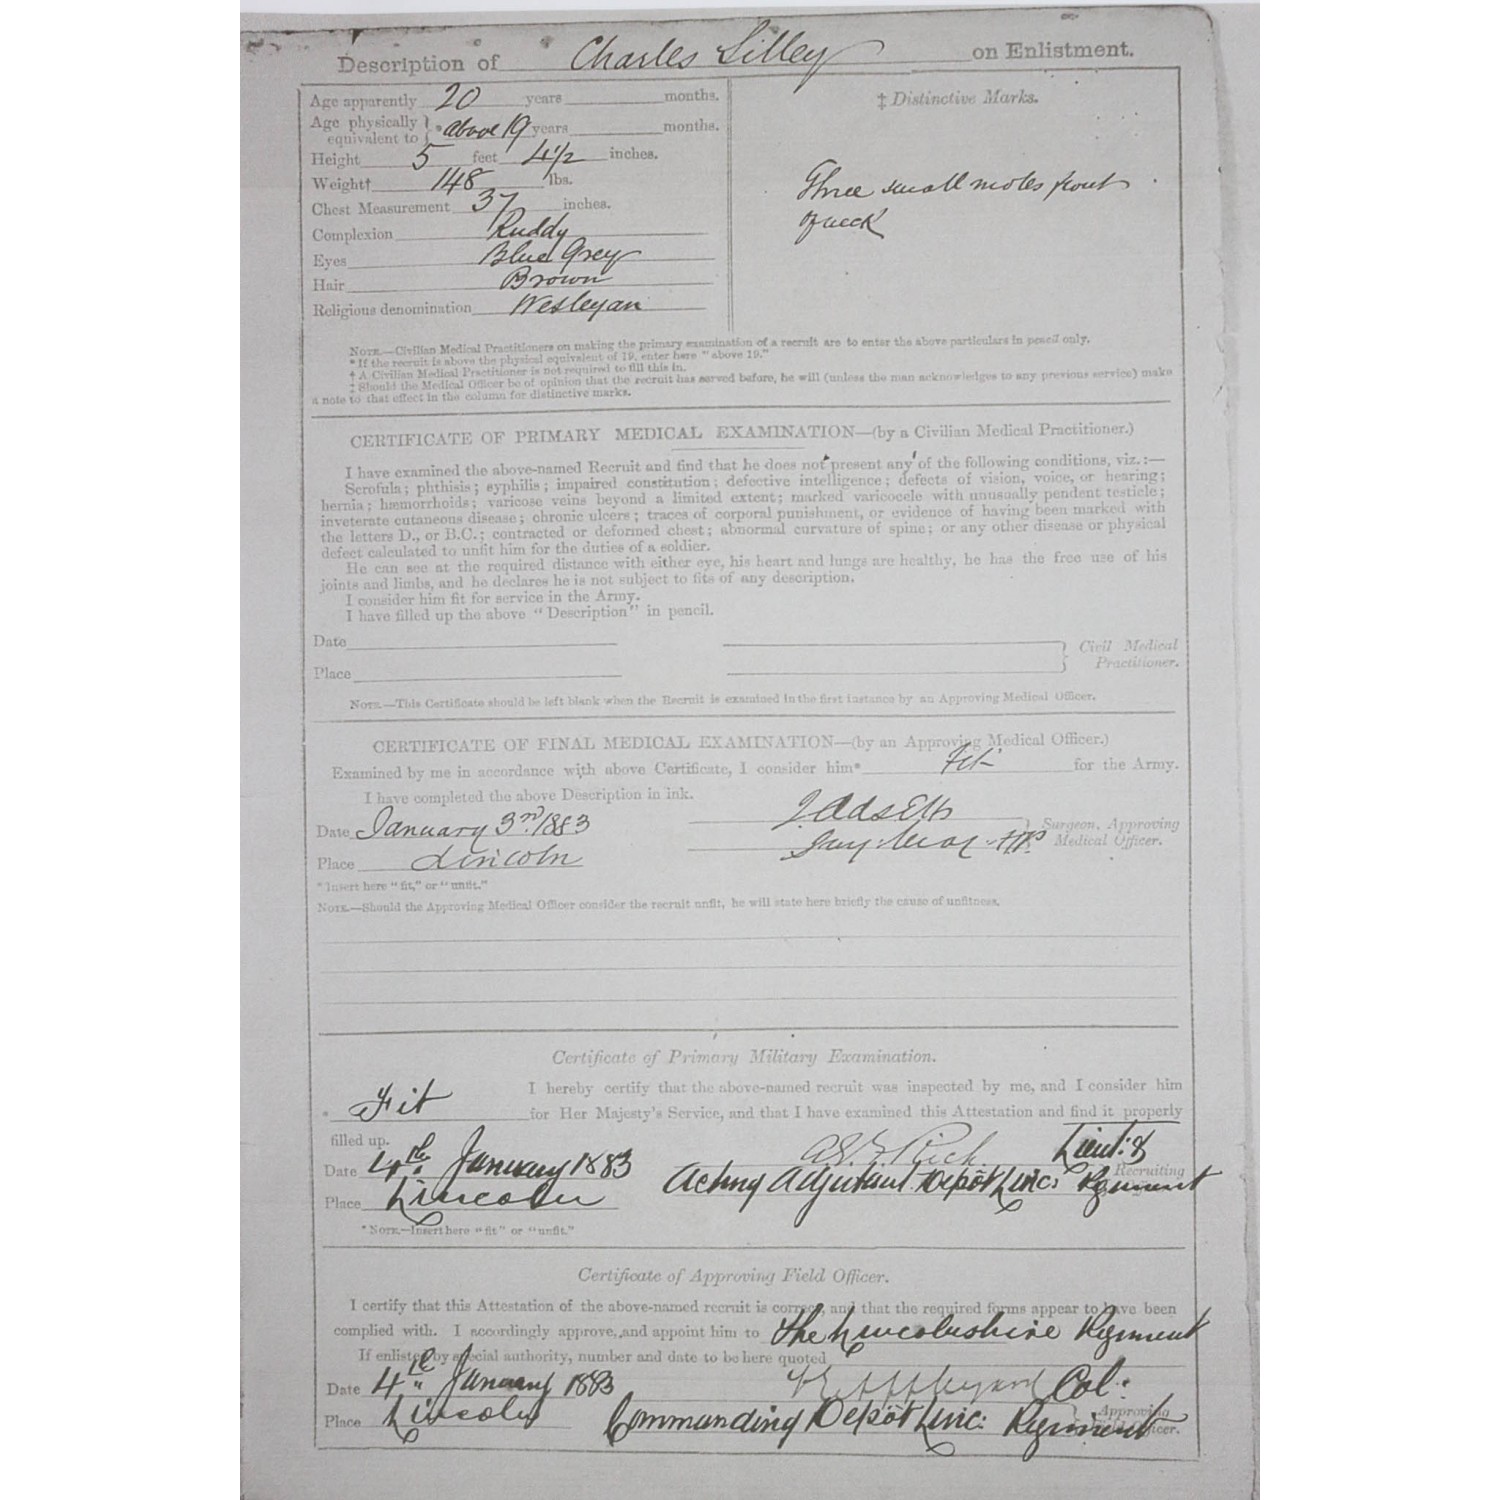 Description of Charles Lilley on Enlistment.
Age apparently 20 years months.
Age physically equivalent to } * above 19 years months.
Height 5 feet 4 1/2 inches.
Weight† 148 lbs.
Chest Measurement 37 inches.
Complexion Ruddy
Eyes Blue Grey
Hair Brown
Religious denomination Wesleyan
‡ Distinctive Marks.
Three small moles front
of neck
NOTE.—Civilian Medical Practitioners on making the primary examination of a recruit are to enter the above particulars in pencil only.
* If the recruit is above the physical equivalent of 19, enter here "above 19."
† A Civilian Medical Practitioner is not required to fill this in.
‡ Should the Medical Officer be of opinion that the recruit has served before, he will (unless the man acknowledges to any previous service) make
a note to that effect in the column for distinctive marks.
CERTIFICATE OF PRIMARY MEDICAL EXAMINATION—(by a Civilian Medical Practitioner.)
I have examined the above-named Recruit and find that he does not present any of the following conditions, viz.:—
Scrofula; phthisis; syphilis; impaired constitution; defective intelligence; defects of vision, voice, or hearing;
hernia; hæmorrhoids; varicose veins beyond a limited extent; marked varicocele with unusually pendent testicle;
inveterate cutaneous disease; chronic ulcers; traces of corporal punishment, or evidence of having been marked with
the letters D., or B.C.; contracted or deformed chest; abnormal curvature of spine; or any other disease or physical
defect calculated to unfit him for the duties of a soldier.
He can see at the required distance with either eye, his heart and lungs are healthy, he has the free use of his
joints and limbs, and he declares he is not subject to fits of any description.
I consider him fit for service in the Army.
I have filled up the above "Description" in pencil.
Date
Place
Civil Medical
Practitioner.
NOTE.—This Certificate should be left blank when the Recruit is examined in the first instance by an Approving Medical Officer.
CERTIFICATE OF FINAL MEDICAL EXAMINATION—(by an Approving Medical Officer.)
Examined by me in accordance with above Certificate, I consider him* Fit for the Army.
I have completed the above Description in ink.
Date January 3rd 1883
Place Lincoln
Surgeon, Approving
Medical Officer.
* Insert here "fit," or "unfit."
NOTE.—Should the Approving Medical Officer consider the recruit unfit, he will state here briefly the cause of unfitness.
Certificate of Primary Military Examination.
I hereby certify that the above-named recruit was inspected by me, and I consider him
* Fit for Her Majesty's Service, and that I have examined this Attestation and find it properly
filled up.
Date 4th January 1883 Rich Lieut: &
Recruiting
Place Lincoln Acting Adjutant Depôt Linc: Regiment
* NOTE.—Insert here "fit" or "unfit."
Certificate of Approving Field Officer.
I certify that this Attestation of the above-named recruit is correct, and that the required forms appear to have been
complied with. I accordingly approve, and appoint him to the Lincolnshire Regiment
If enlisted by special authority, number and date to be here quoted
Date 4th January 1883 Col:
Place Lincoln Commanding Depôt Linc: Regiment
Approving
Field Officer.